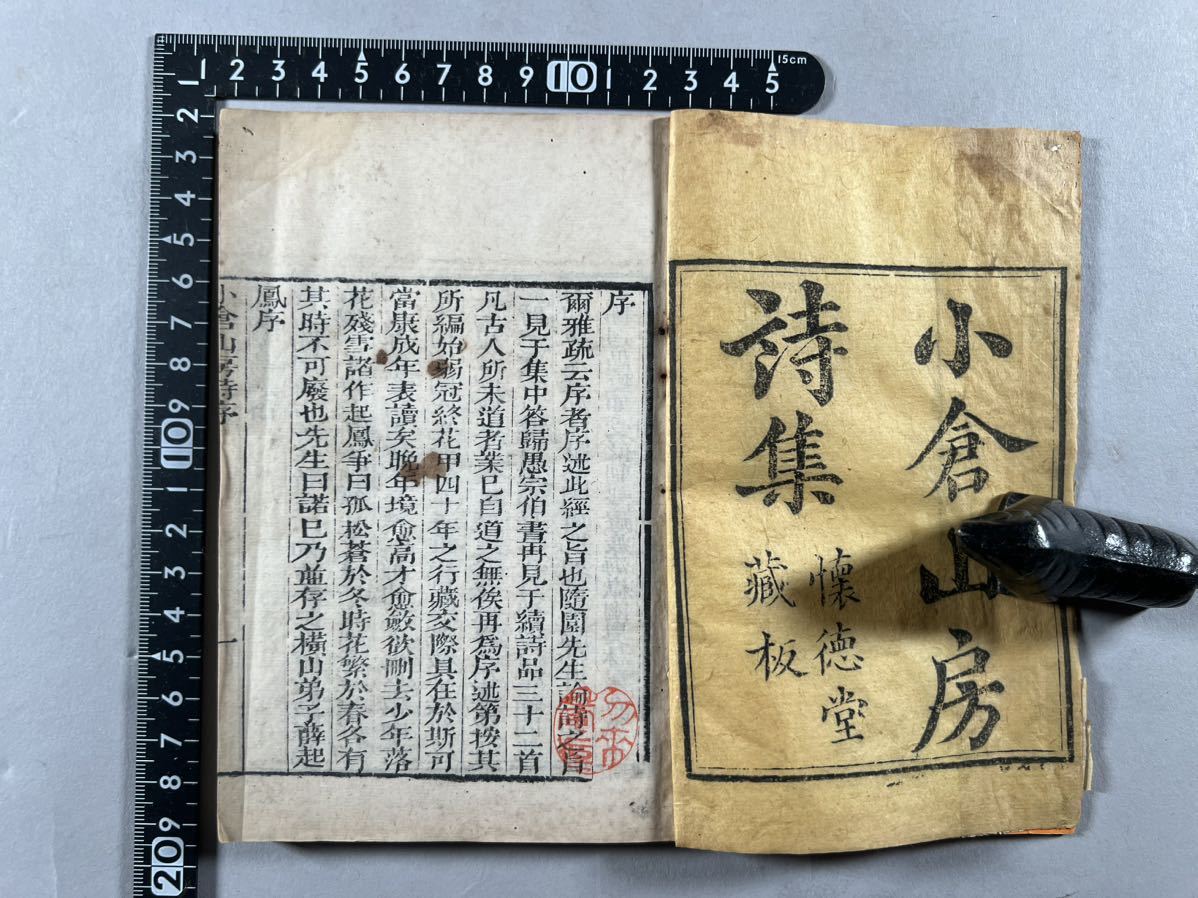 小倉山房
詩集
懷德堂
藏板
序
爾雅疏云序者序述此經之旨也隨園先生論詩之旨
一見于集中答歸愚宗伯書再見于續詩品三十二首
凡古人所未道者業已自道之無俟再爲序述第按其
所編始弱冠終花甲四十年之行藏交際具在於斯可
當康成年表讀矣晚年境愈高才愈斂欲刪去少年落
花殘雪諸作起鳳爭曰孤松蒼於冬時花繁於春各有
其時不可廢也先生曰諾已乃並存之橫山弟子薛起
鳳序
小倉山房詩序
一
1 2 3 4 5 6 7 8 9 10 1 2 3 4 5
15cm
1 2 3 4 5 6 7 8 9 10 1 2 3 4 5 6 7 8 9 20